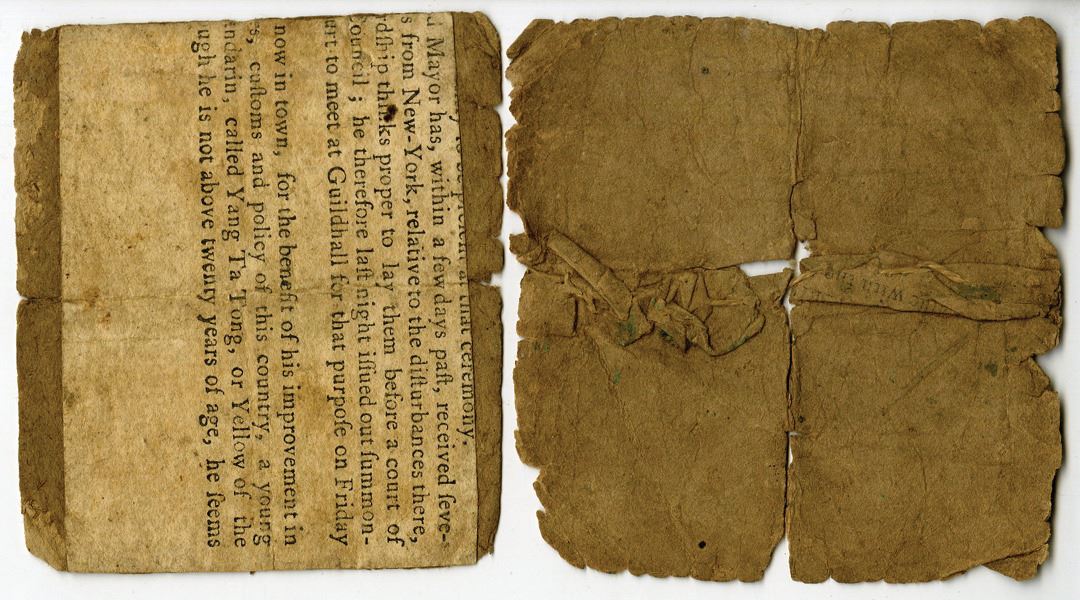 to be preſent at that ceremony.
d Mayor has, within a few days paſt, received ſeve-
s from New-York, relative to the diſturbances there,
rdſhip thinks proper to lay them before a court of
ouncil ; he therefore laſt night iſſued out ſummon-
urt to meet at Guildhall for that purpoſe on Friday
now in town, for the benefit of his improvement in
s, cuſtoms and policy of this country, a young
ndarin, called Yang Ta Tong, or Yellow of the
ugh he is not above twenty years of age, he ſeems